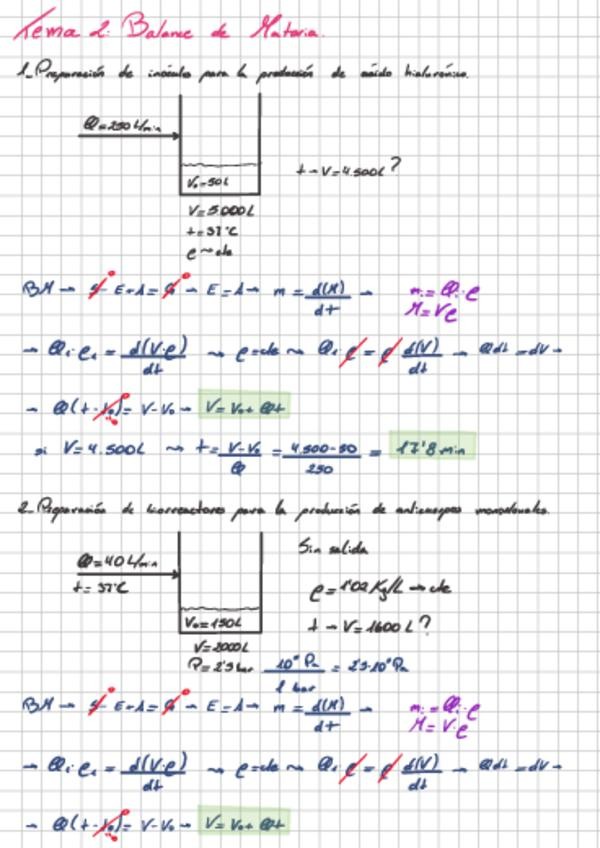 Tema 2: Balance de Materia.
1_ Preparación de inóculo para la producción de ácido hialurónico.
Q = 250 L/min
V₀ = 50 L
t → V = 4.500 L ?
V = 5.000 L
t = 37 °C
ρ → cte
BM → S + E + A = G → E = A → m = d(M)/dt →
mᵢ = Qᵢ · ρ
M = Vρ
→ Qᵢ ρ₁ = d(V·ρ)/dt → ρ = cte → Qᵢ ρ = ρ d(V)/dt → Qdt = dV →
→ Q(t - t₀) = V - V₀ → V = V₀ + Qt
si V = 4.500 L → t = V - V₀ / Q = 4.500 - 50 / 250 = 17'8 min
2_ Preparación de biorreactores para la producción de anticuerpos monoclonales.
Sin salida
Q = 40 L/min
t = 37 °C
ρ = 1'02 Kg/L → cte
V₀ = 150 L
t → V = 1600 L ?
V = 2000 L
P = 2'3 bar 10⁵ Pa / 1 bar = 2'3·10⁵ Pa
BM → S + E + A = G → E = A → m = d(M)/dt →
mᵢ = Qᵢ · ρ
M = V·ρ
→ Qᵢ ρ₁ = d(V·ρ)/dt → ρ = cte → Qᵢ ρ = ρ d(V)/dt → Qdt = dV →
→ Q(t - t₀) = V - V₀ → V = V₀ + Qt